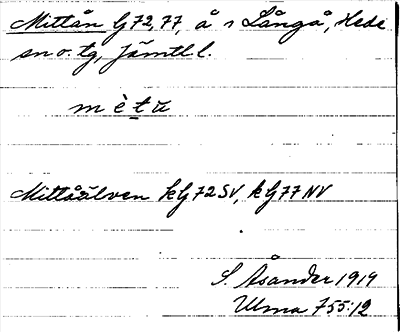 Mittån G 72, 77, å i Långå, Hede
sn o. tg, Jämtl l.
m è t u
Mittåälven kG 72 SV, kG 77 NV
S. Åsander 1919
Ulma 755:12